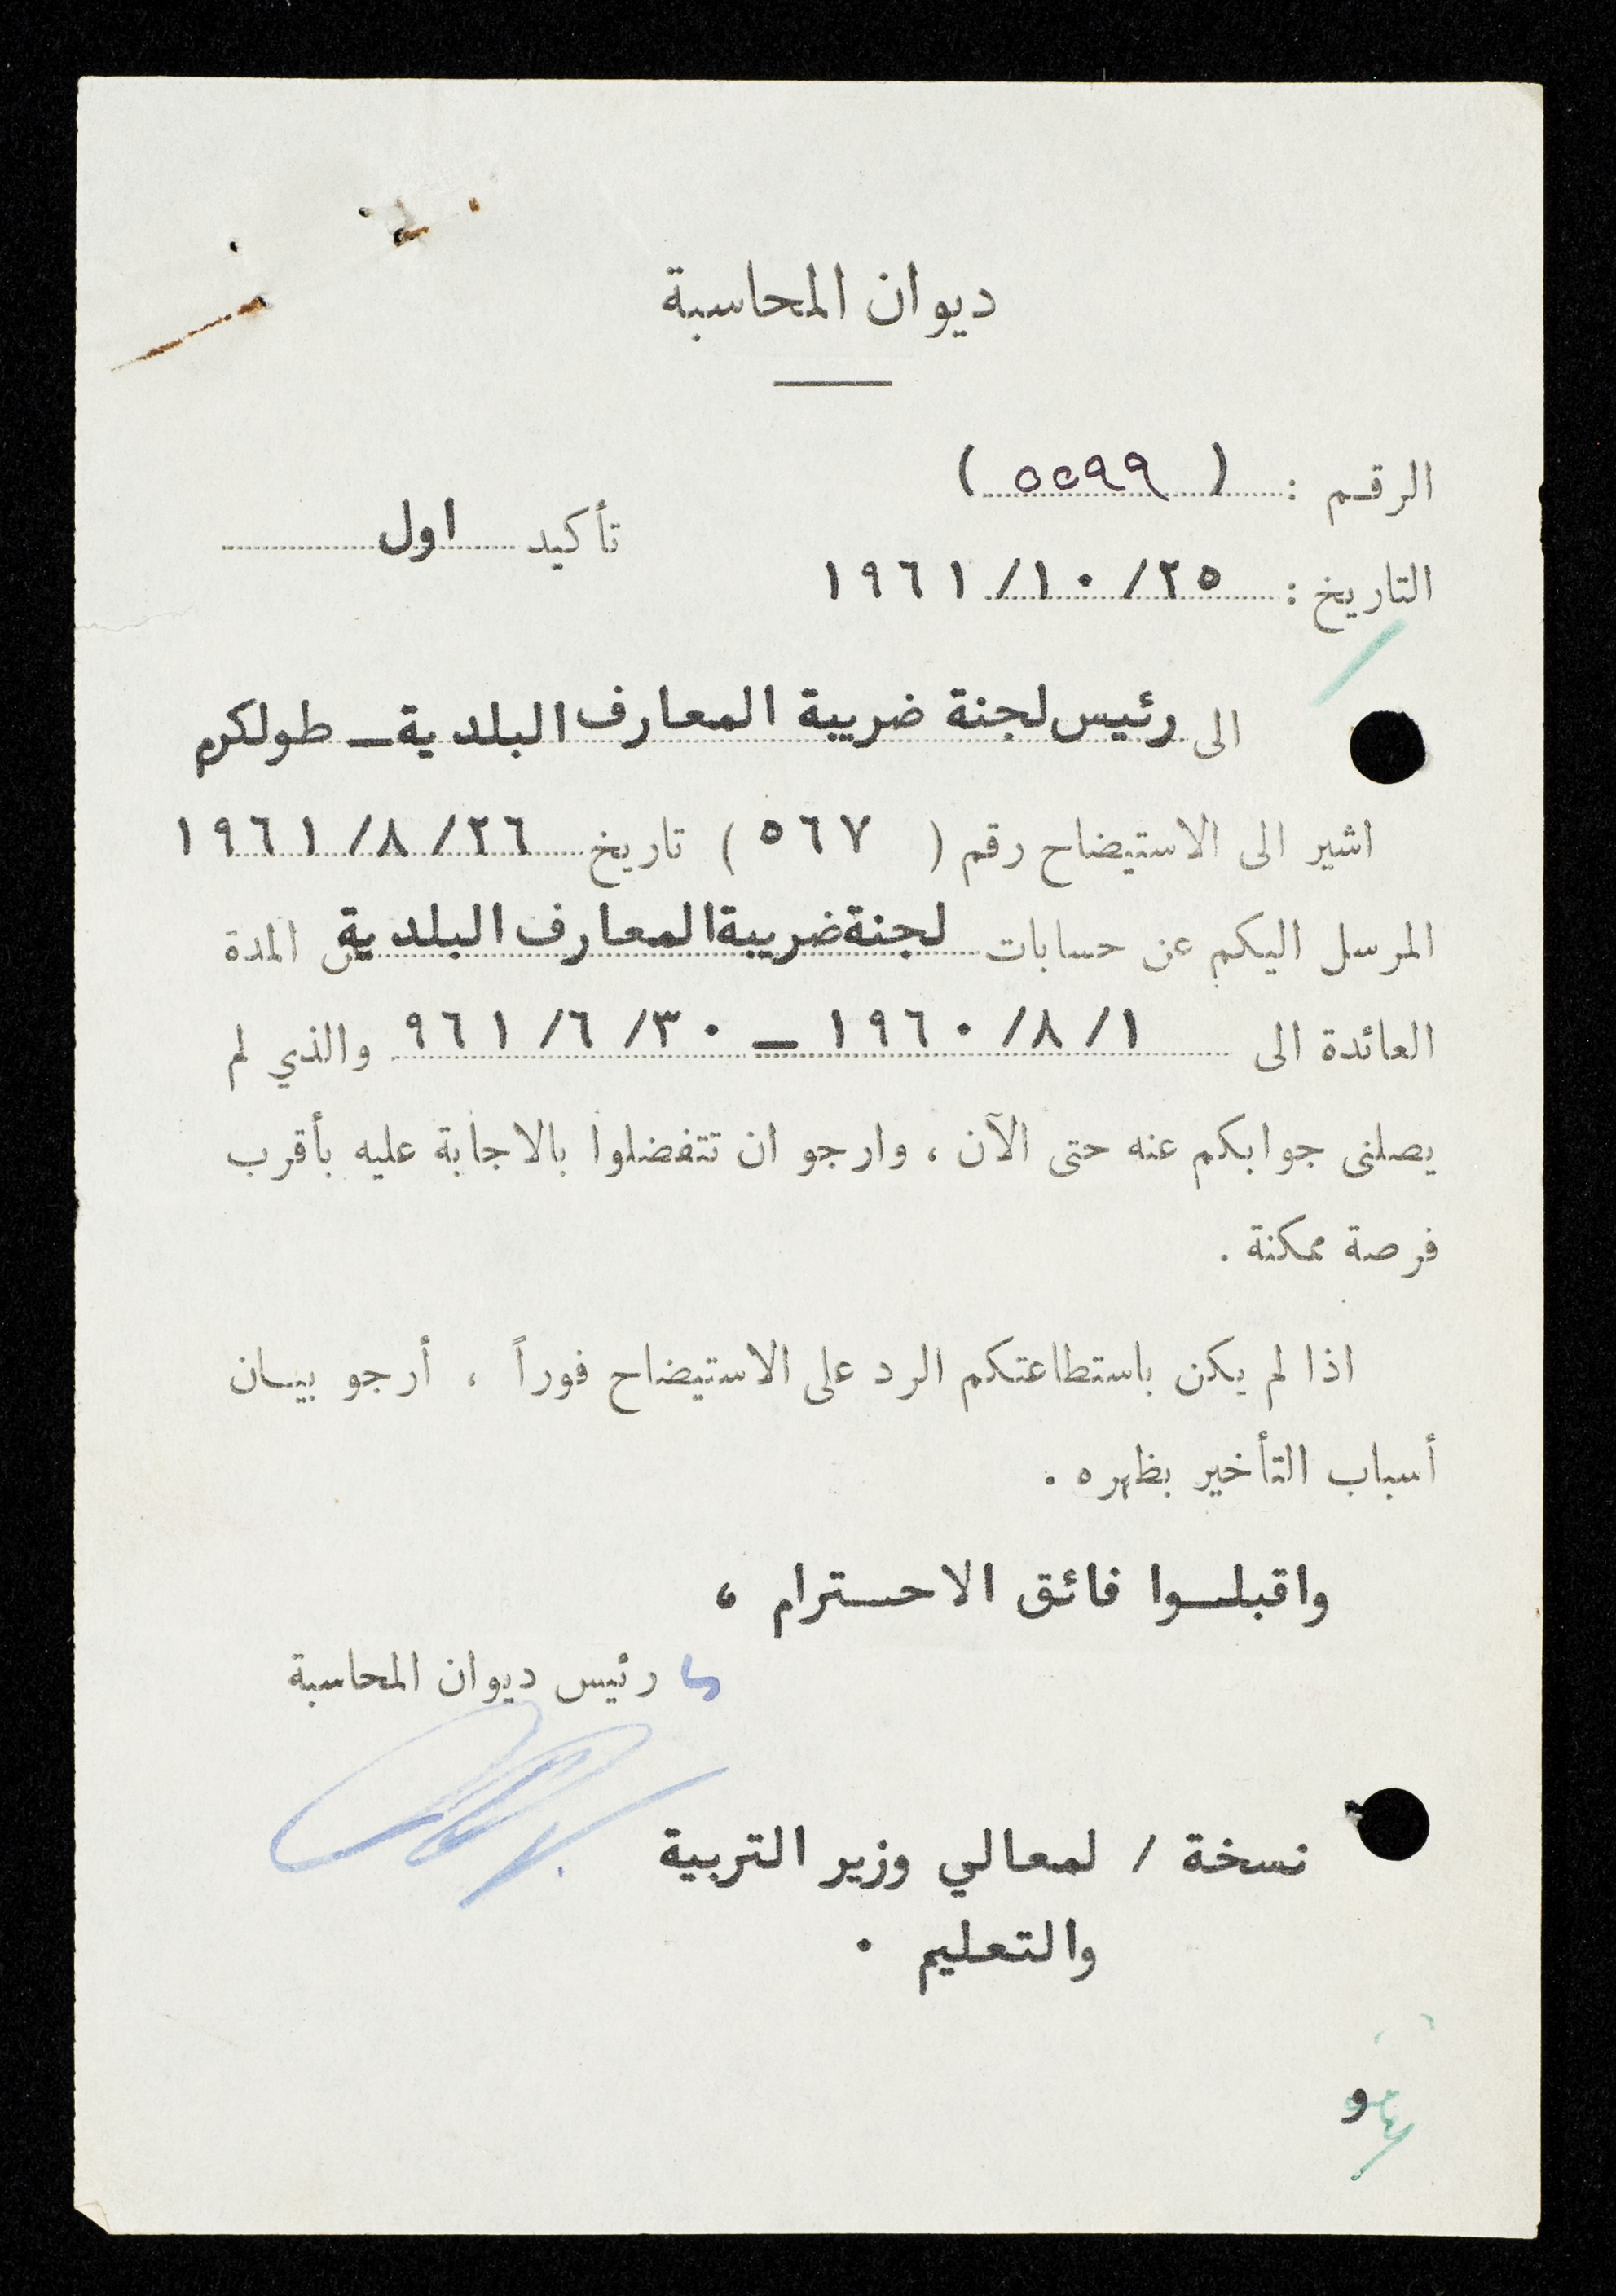 ديوان المحاسبة
الرقم : ( ٥٥٩٩ )
تأكيد اول
التاريخ : ٢٥/ ١٠/ ١٩٦١
الى رئيس لجنة ضريبة المعارف البلدية ـ طولكرم
اشير الى الاستيضاح رقم ( ٥٦٧ ) تاريخ ٢٦/ ٨/ ١٩٦١
المرسل اليكم عن حسابات لجنة ضريبة المعارف البلدية عن المدة
العائدة الى ١/ ٨/ ١٩٦٠ ـ ٣٠/ ٦/ ٩٦١ والذي لم
يصلنى جوابكم عنه حتى الآن ، وارجو ان تتفضلوا بالاجابة عليه بأقرب
فرصة ممكنة .
اذا لم يكن باستطاعتكم الرد على الاستيضاح فوراً ، أرجو بيان
أسباب التأخير بظهره .
واقبلوا فائق الاحترام ،
رئيس ديوان المحاسبة
نسخة / لمعالي وزير التربية
والتعليم .
و